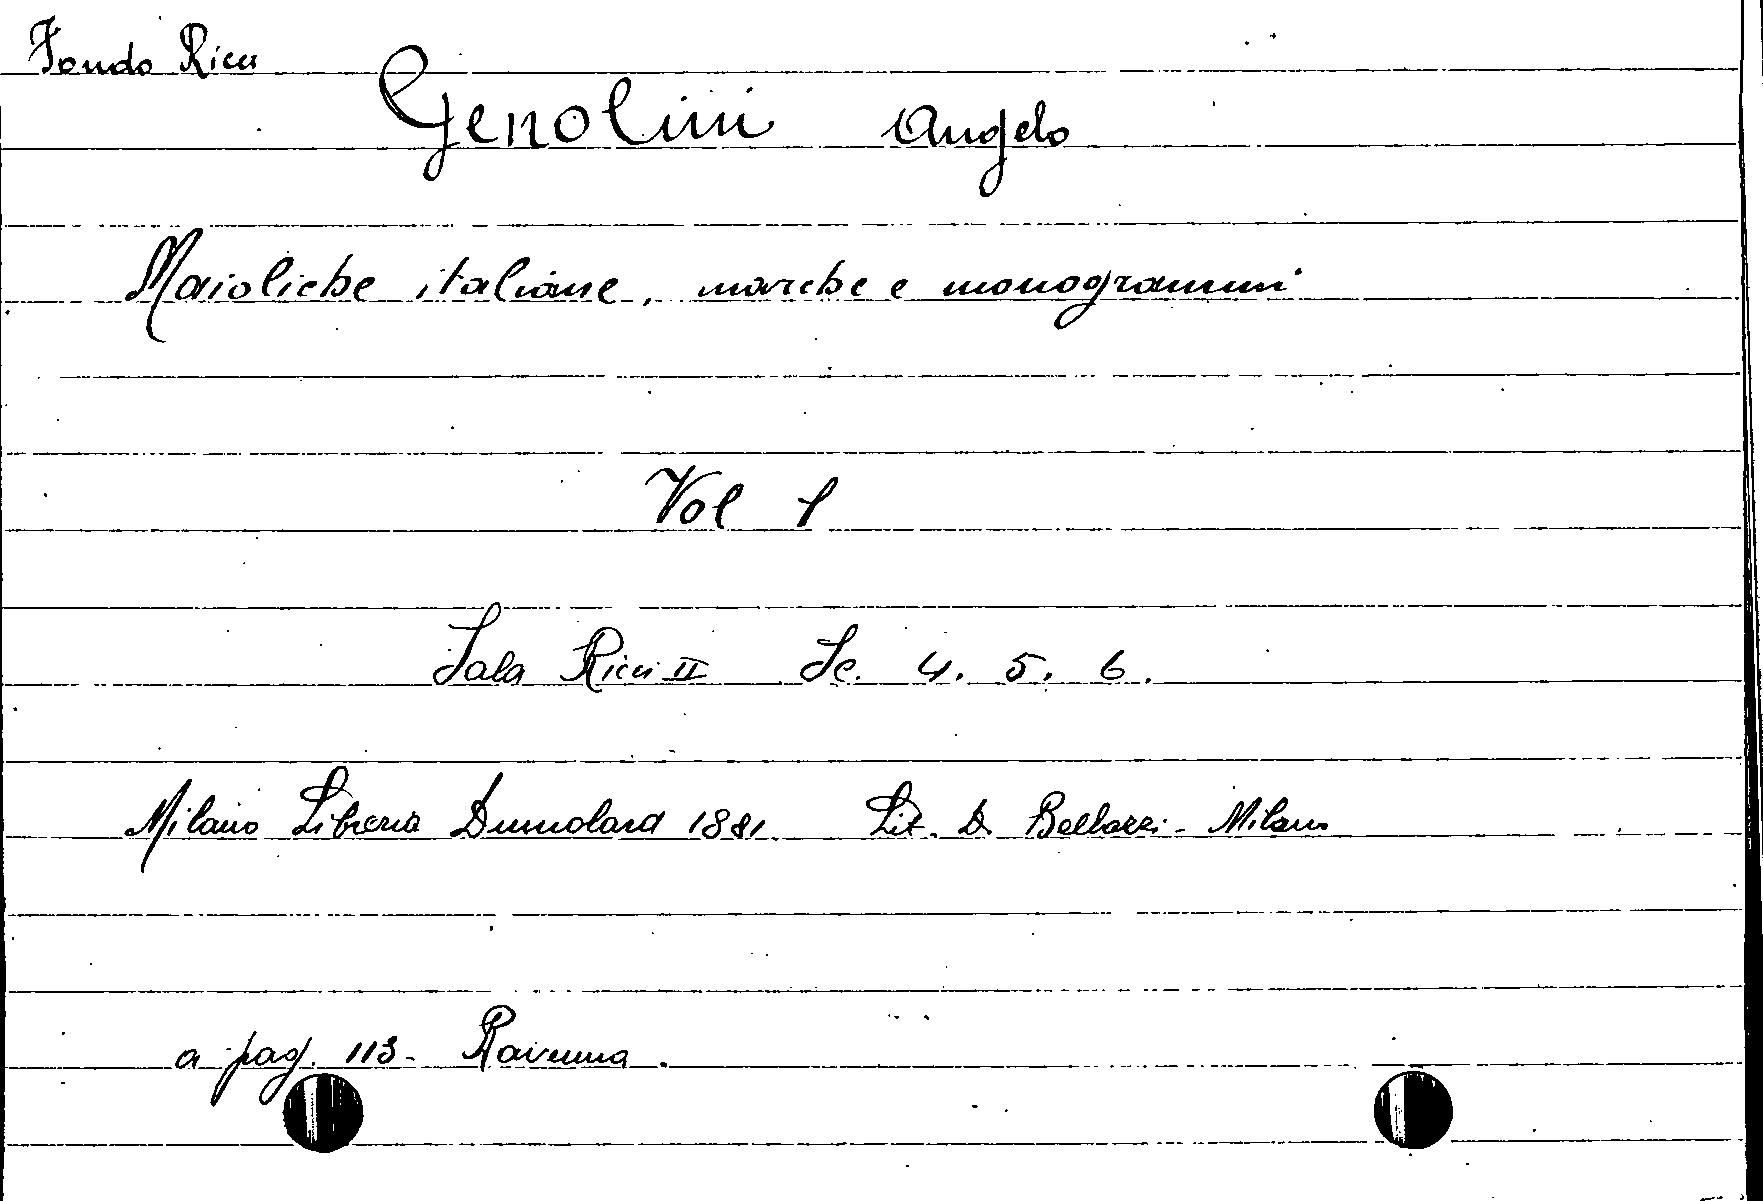 Fondo Ricci
Genolini Angelo
Maioliche italiane, marche e monogrammi
Vol 1
Sala Ricci II Sc. 4. 5. 6.
Milano Libreria Dumolard 1881. Lit. D. Bellazzi - Milano
a pag. 113 - Ravenna.